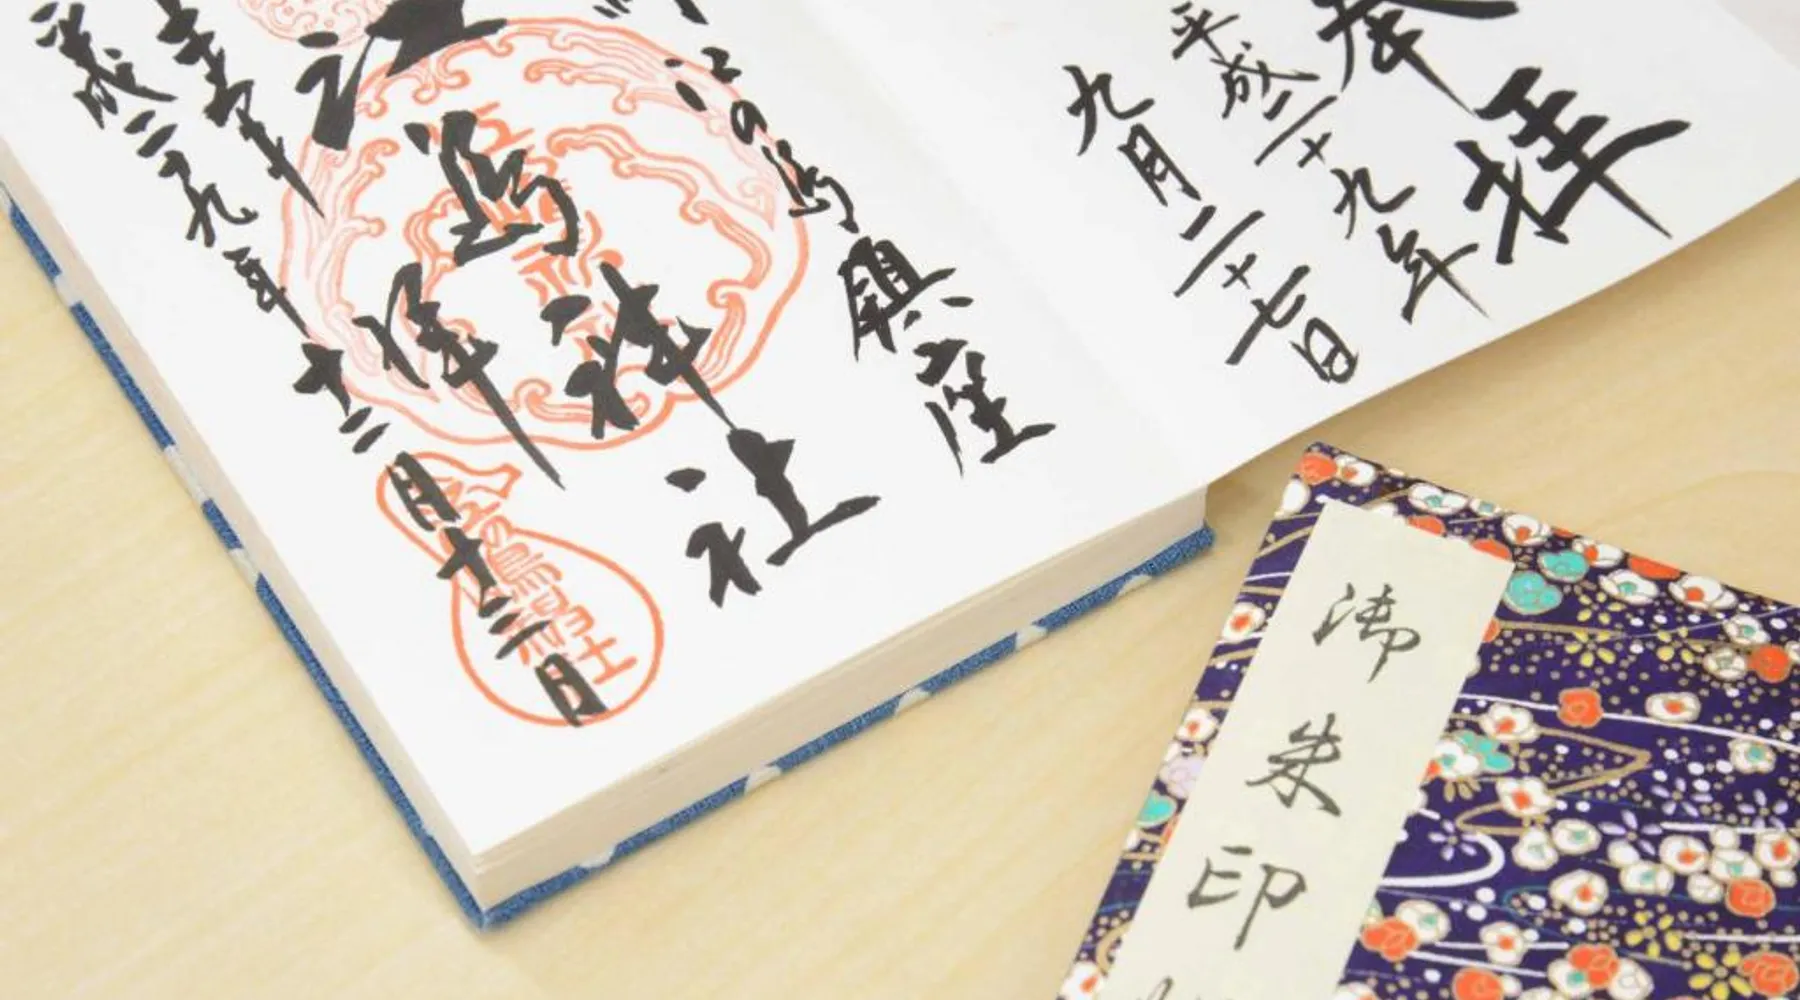 奉拝
平成二十九年
九月二十七日
江の嶋鎮座
江嶋神社
拝
平成二十九年十二月十三日
御朱印